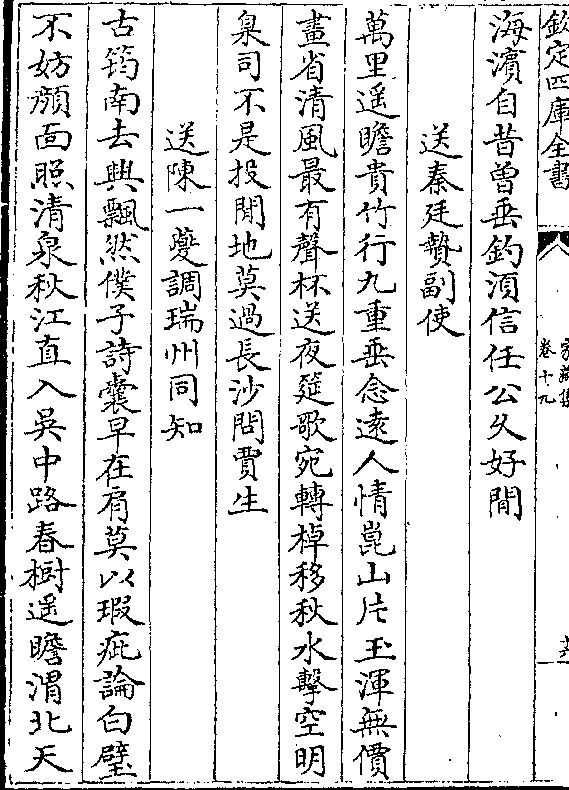 欽定四庫全書
家藏集
卷十九
海濵自昔曽垂釣湏信任公久好閒
送秦廷贄副使
萬里遥瞻貴竹行九重垂念逺人情崑山片玉渾無價
畫省清風最有聲杯送夜筵歌宛轉棹移秋水擊空明
臬司不是投閒地莫過長沙問賈生
送陳一夔調瑞州同知
古筠南去興飄然僕子詩囊早在肩莫以瑕疵論白璧
不妨顔面照清泉秋江直入吳中路春樹遥瞻渭北天